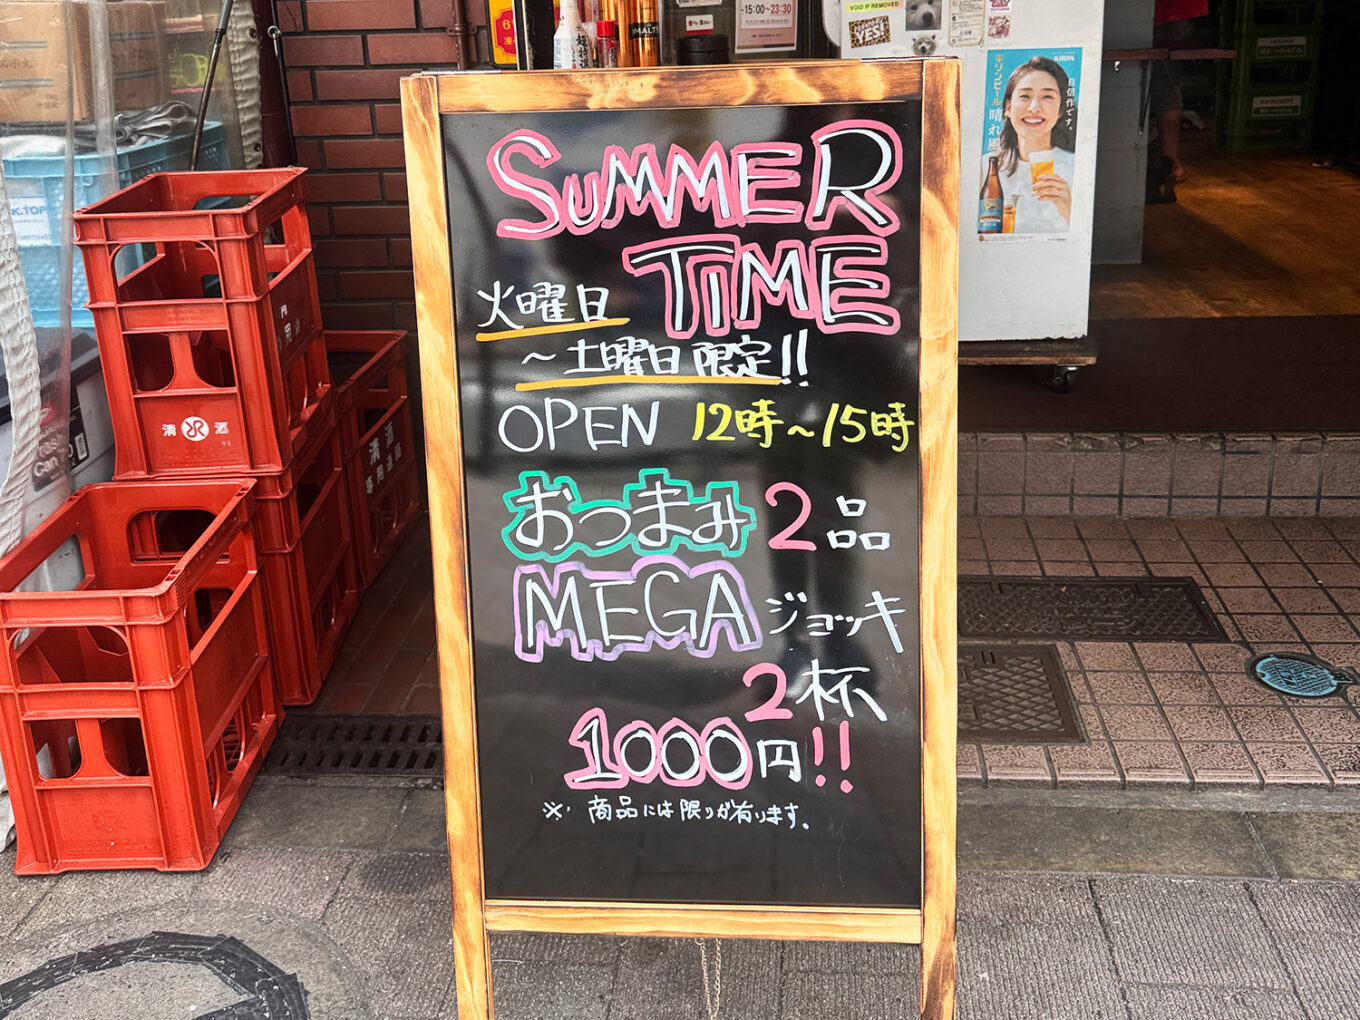 SUMMER
TIME
火曜日
～土曜日限定!!
OPEN 12時～15時
おつまみ 2品
MEGA ジョッキ
2杯
1000円!!
※ 商品には限りが有ります。
-15:00~23:30
VOID IF REMOVED
YES!
KIRIN
自信作です。
キリンビール 晴れ風
清 酒
清酒